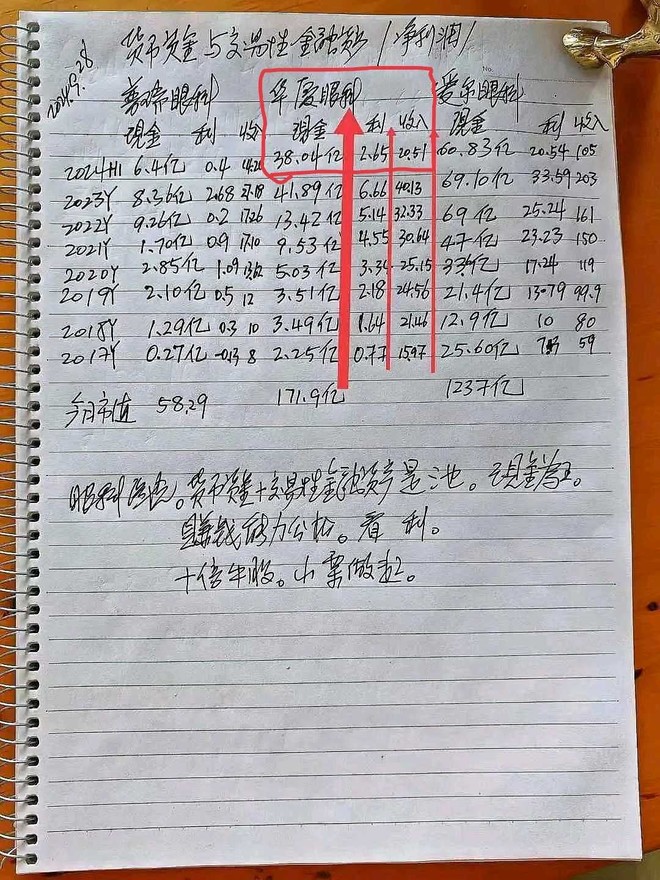 货币资金与交易性金融资产/净利润/
2024.9.28
普瑞眼科 华厦眼科 爱尔眼科
现金 利 收入 现金 利 收入 现金 利 收入
2024H1 6.4亿 0.4 38.04亿 2.65 20.51 60.83亿 20.54 105
2023Y 8.36亿 2.68 27.18 41.89亿 6.66 40.13 69.10亿 33.59 203
2022Y 9.26亿 0.2 17.26 13.42亿 5.14 32.33 69亿 25.24 161
2021Y 1.70亿 0.9 17.10 9.53亿 4.55 30.64 47亿 23.23 150
2020Y 2.85亿 1.09 13.62 5.03亿 3.34 25.15 亿 17.24 119
2019Y 2.10亿 0.5 12 3.51亿 2.18 24.56 21.4亿 13.79 99.9
2018Y 1.29亿 0.3 10 3.49亿 1.64 21.46 12.9亿 10 80
2017Y 0.27亿 -0.13 8 2.25亿 0.77 15.97 25.60亿 59
今日市值 58.29 171.9亿 1237亿
眼科医院。货币资金+交易性金融资产是池。现金为王。
赚钱能力分析。看利。
十倍牛股。小票做起。